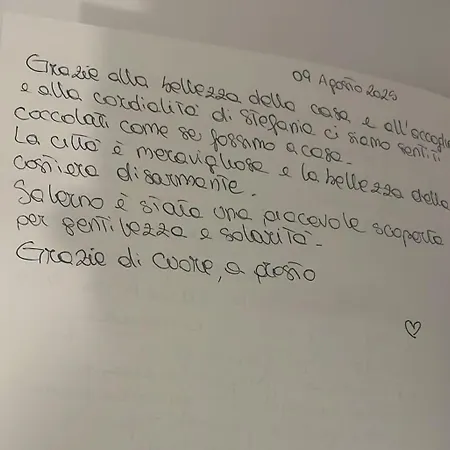 09 Agosto 2025
Grazie alla bellezza della casa e all'accogli
e alla cordialità di Stefania ci siamo sentiti
coccolati come se fossimo a casa.
La città è meravigliosa e la bellezza della
costiera disarmante.
Salerno è stata una piacevole scoperta
per gentilezza e solarità.
Grazie di cuore, a presto
♡